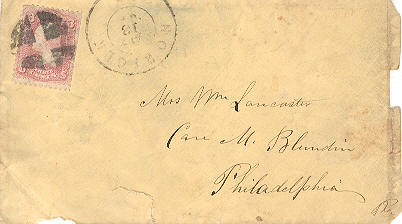 Mrs Wm Lancaster
Care M. Blundin
Philadelphia
Pa